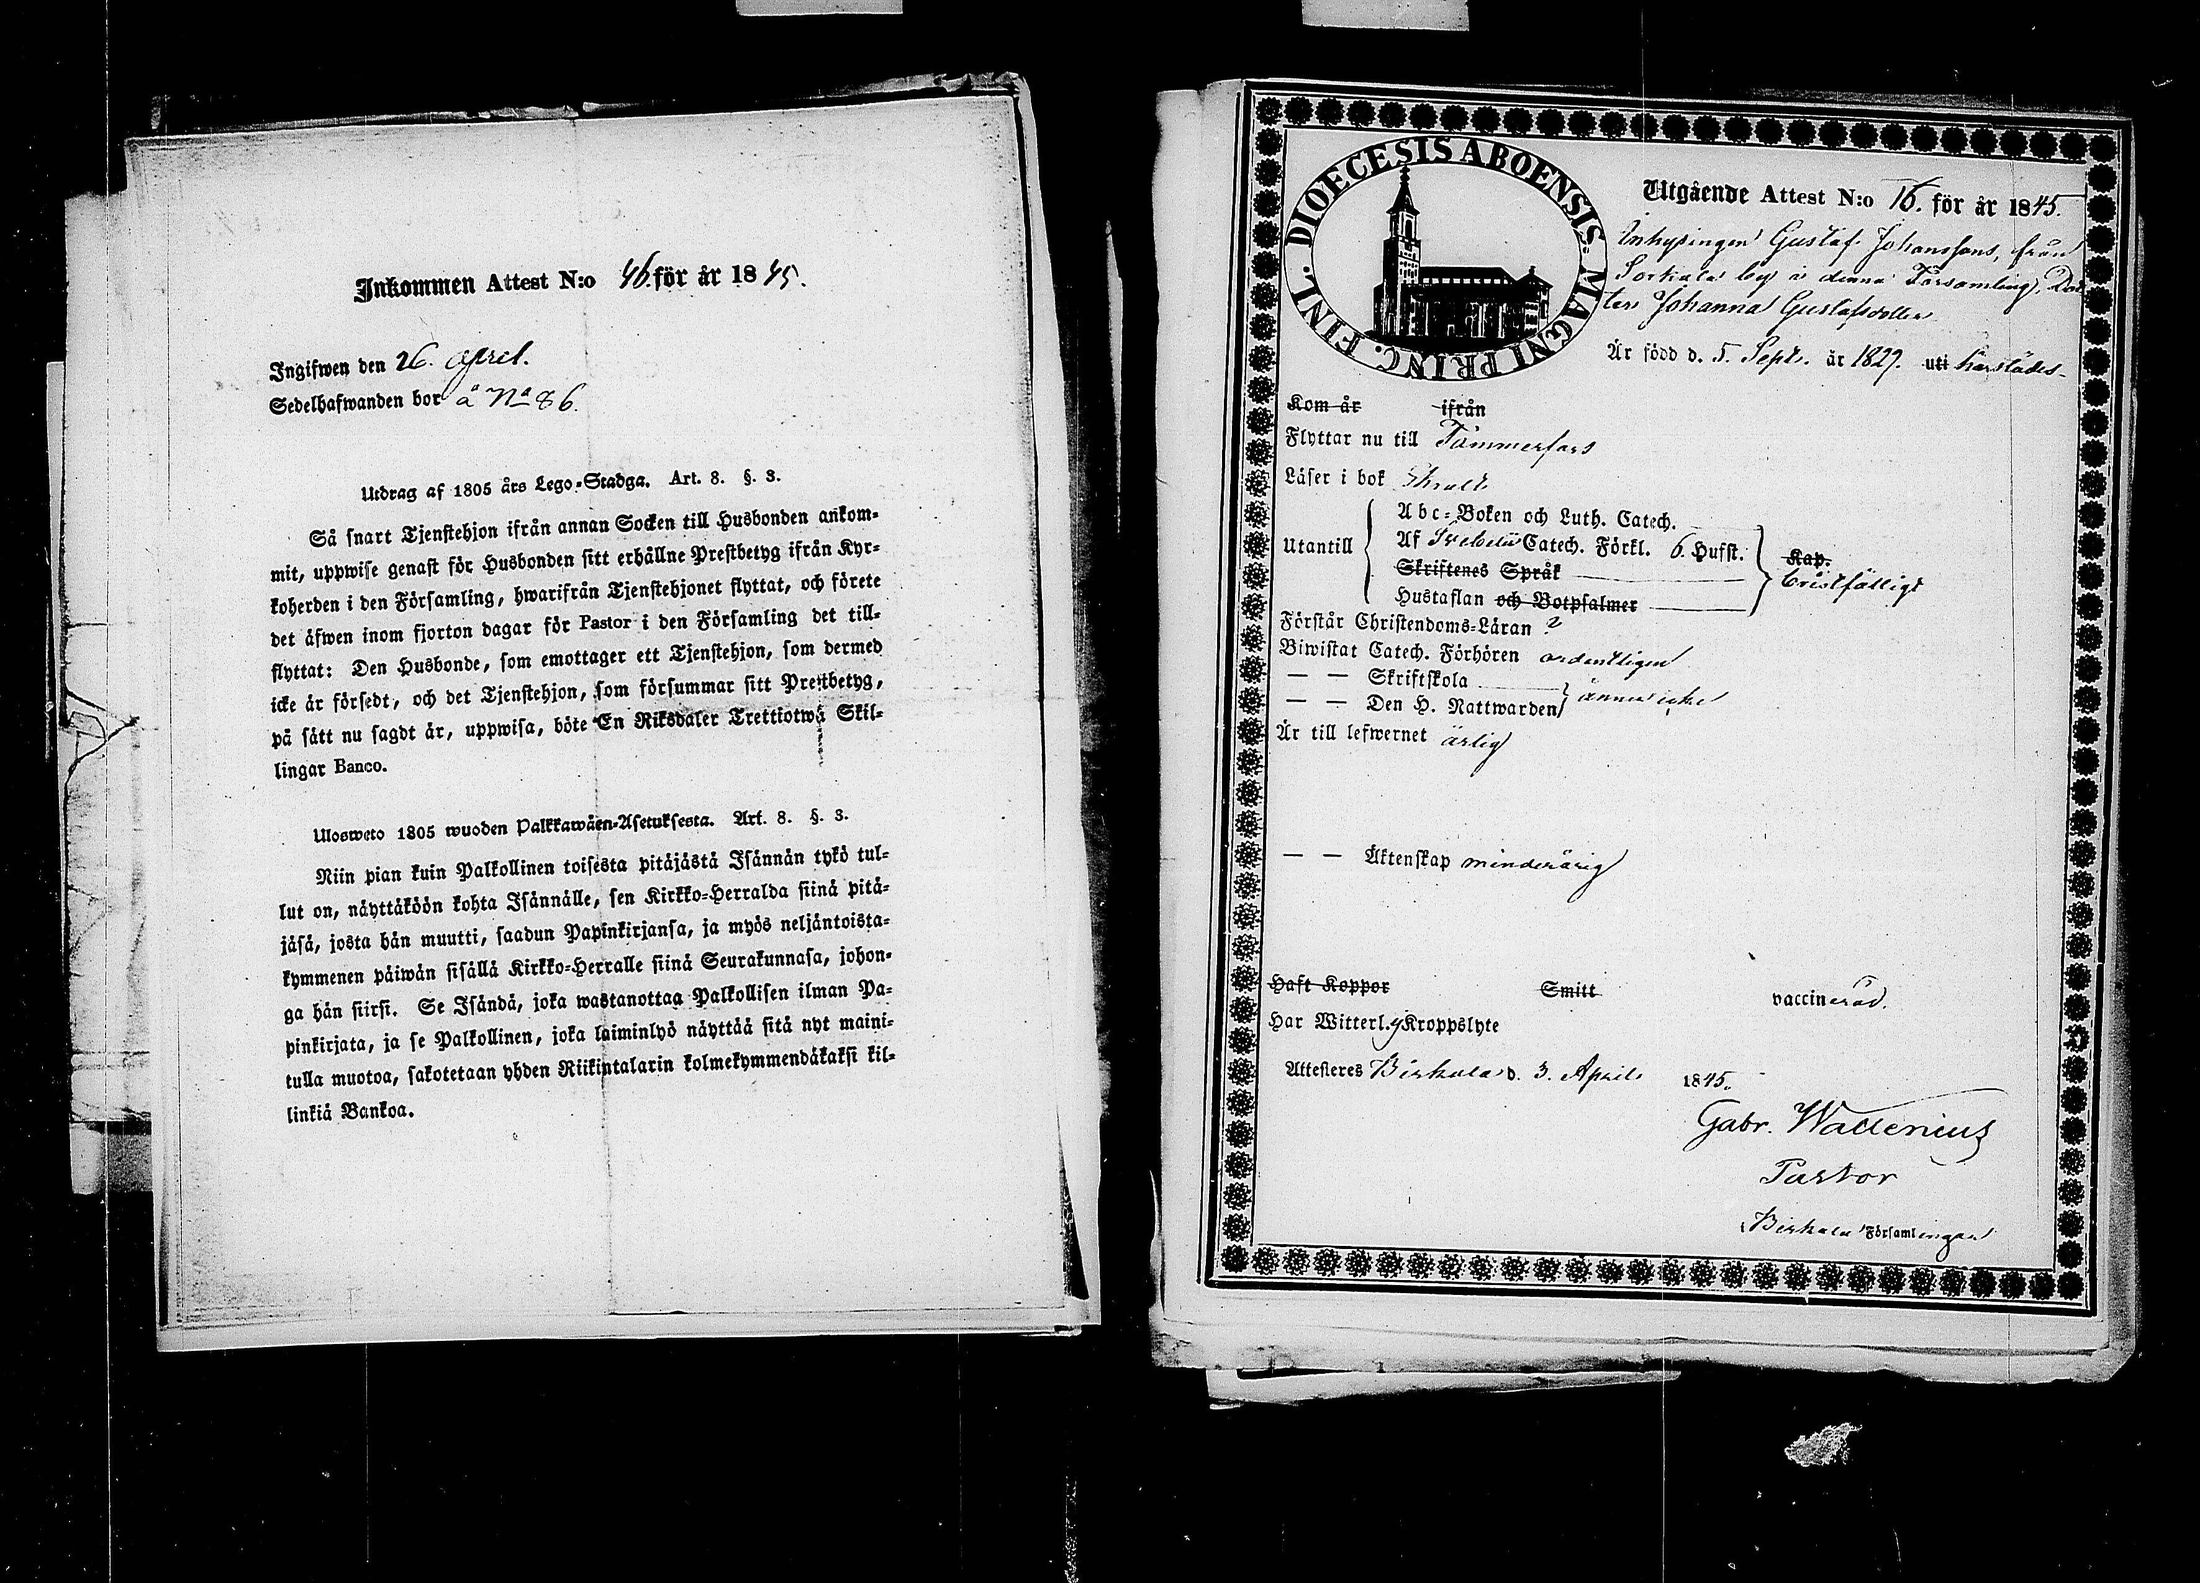 Inkommen Attest N:o 46. för år 1845.
Ingifwen den 26. April.
Sedelhafwanden bor å No 86.
Utdrag af 1805 års Lego-Stadga. Art. 8. §. 3.
Så snart Tjenstehjon ifrån annan Socken till Husbonden ankom-
mit, uppwise genast för Husbonden sitt erhållne Prestbetyg ifrån Kyr-
koherden i den Församling, hwarifrån Tjenstehjonet flyttat, och förete
det äfwen inom fjorton dagar för Pastor i den Församling det till-
flyttat: Den Husbonde, som emottager ett Tjenstehjon, som dermed
icke är försedt, och det Tjenstehjon, som försummar sitt Prestbetyg,
på sätt nu sagdt är, uppwisa, böte En Riksdaler Trettiotwå Skil-
lingar Banco.
Ulosweto 1805 wuoden Palkkawäen-Asetuksesta. Art. 8. §. 3.
Niin pian kuin Palkollinen toisesta pitäjästä Isännän tykö tul-
lut on, näyttäköön kohta Isännälle, sen Kirkko-Herralda siinä pitä-
jäsä, josta hän muutti, saadun Papinkirjansa, ja myös neljäntoista-
kymmenen päiwän sisällä Kirkko-Herralle siinä Seurakunnasa, johon-
ga hän siirsi. Se Isändä, joka wastanottaa Palkollisen ilman Pa-
pinkirjata, ja se Palkollinen, joka laiminlyö näyttää sitä nyt maini-
tulla muotoa, sakotetaan yhden Riikintalarin kolmekymmendäkaksi kil-
linkiä Bankoa.
DIOECESIS ABOENSIS MAGNI PRINC. FINL.
Utgående Attest N:o 16. för år 1845.
Inhysingen Gustaf Johanssons, från
Sorkala by i denna Församling, Dot
ter Johanna Gustafsdotter
Är född d. 5. Sept. år 1829. uti härstädes
Kom år ifrån
Flyttar nu till Tammerfors
Läser i bok
Utantill
Abc-Boken och Luth. Catech.
Af Svebelii Catech. Förkl. 6. Hufst.
Skriftenes Språk
Hustaflan och Botpsalmer
Kap.
bristfälligt
Förstår Christendoms-Läran
Biwistat Catech. Förhören ordentligen
— — Skriftskola
— — Den H. Nattwarden
ännu icke
Är till lefwernet ärlig
— — Äktenskap minderårig
Haft Koppor Smitt vaccinerad.
Har Witterl. Kroppslyte
Attesteres Birkala d. 3. April 1845.
Gabr. Wallenius
Pastor
Birkala Församlingar